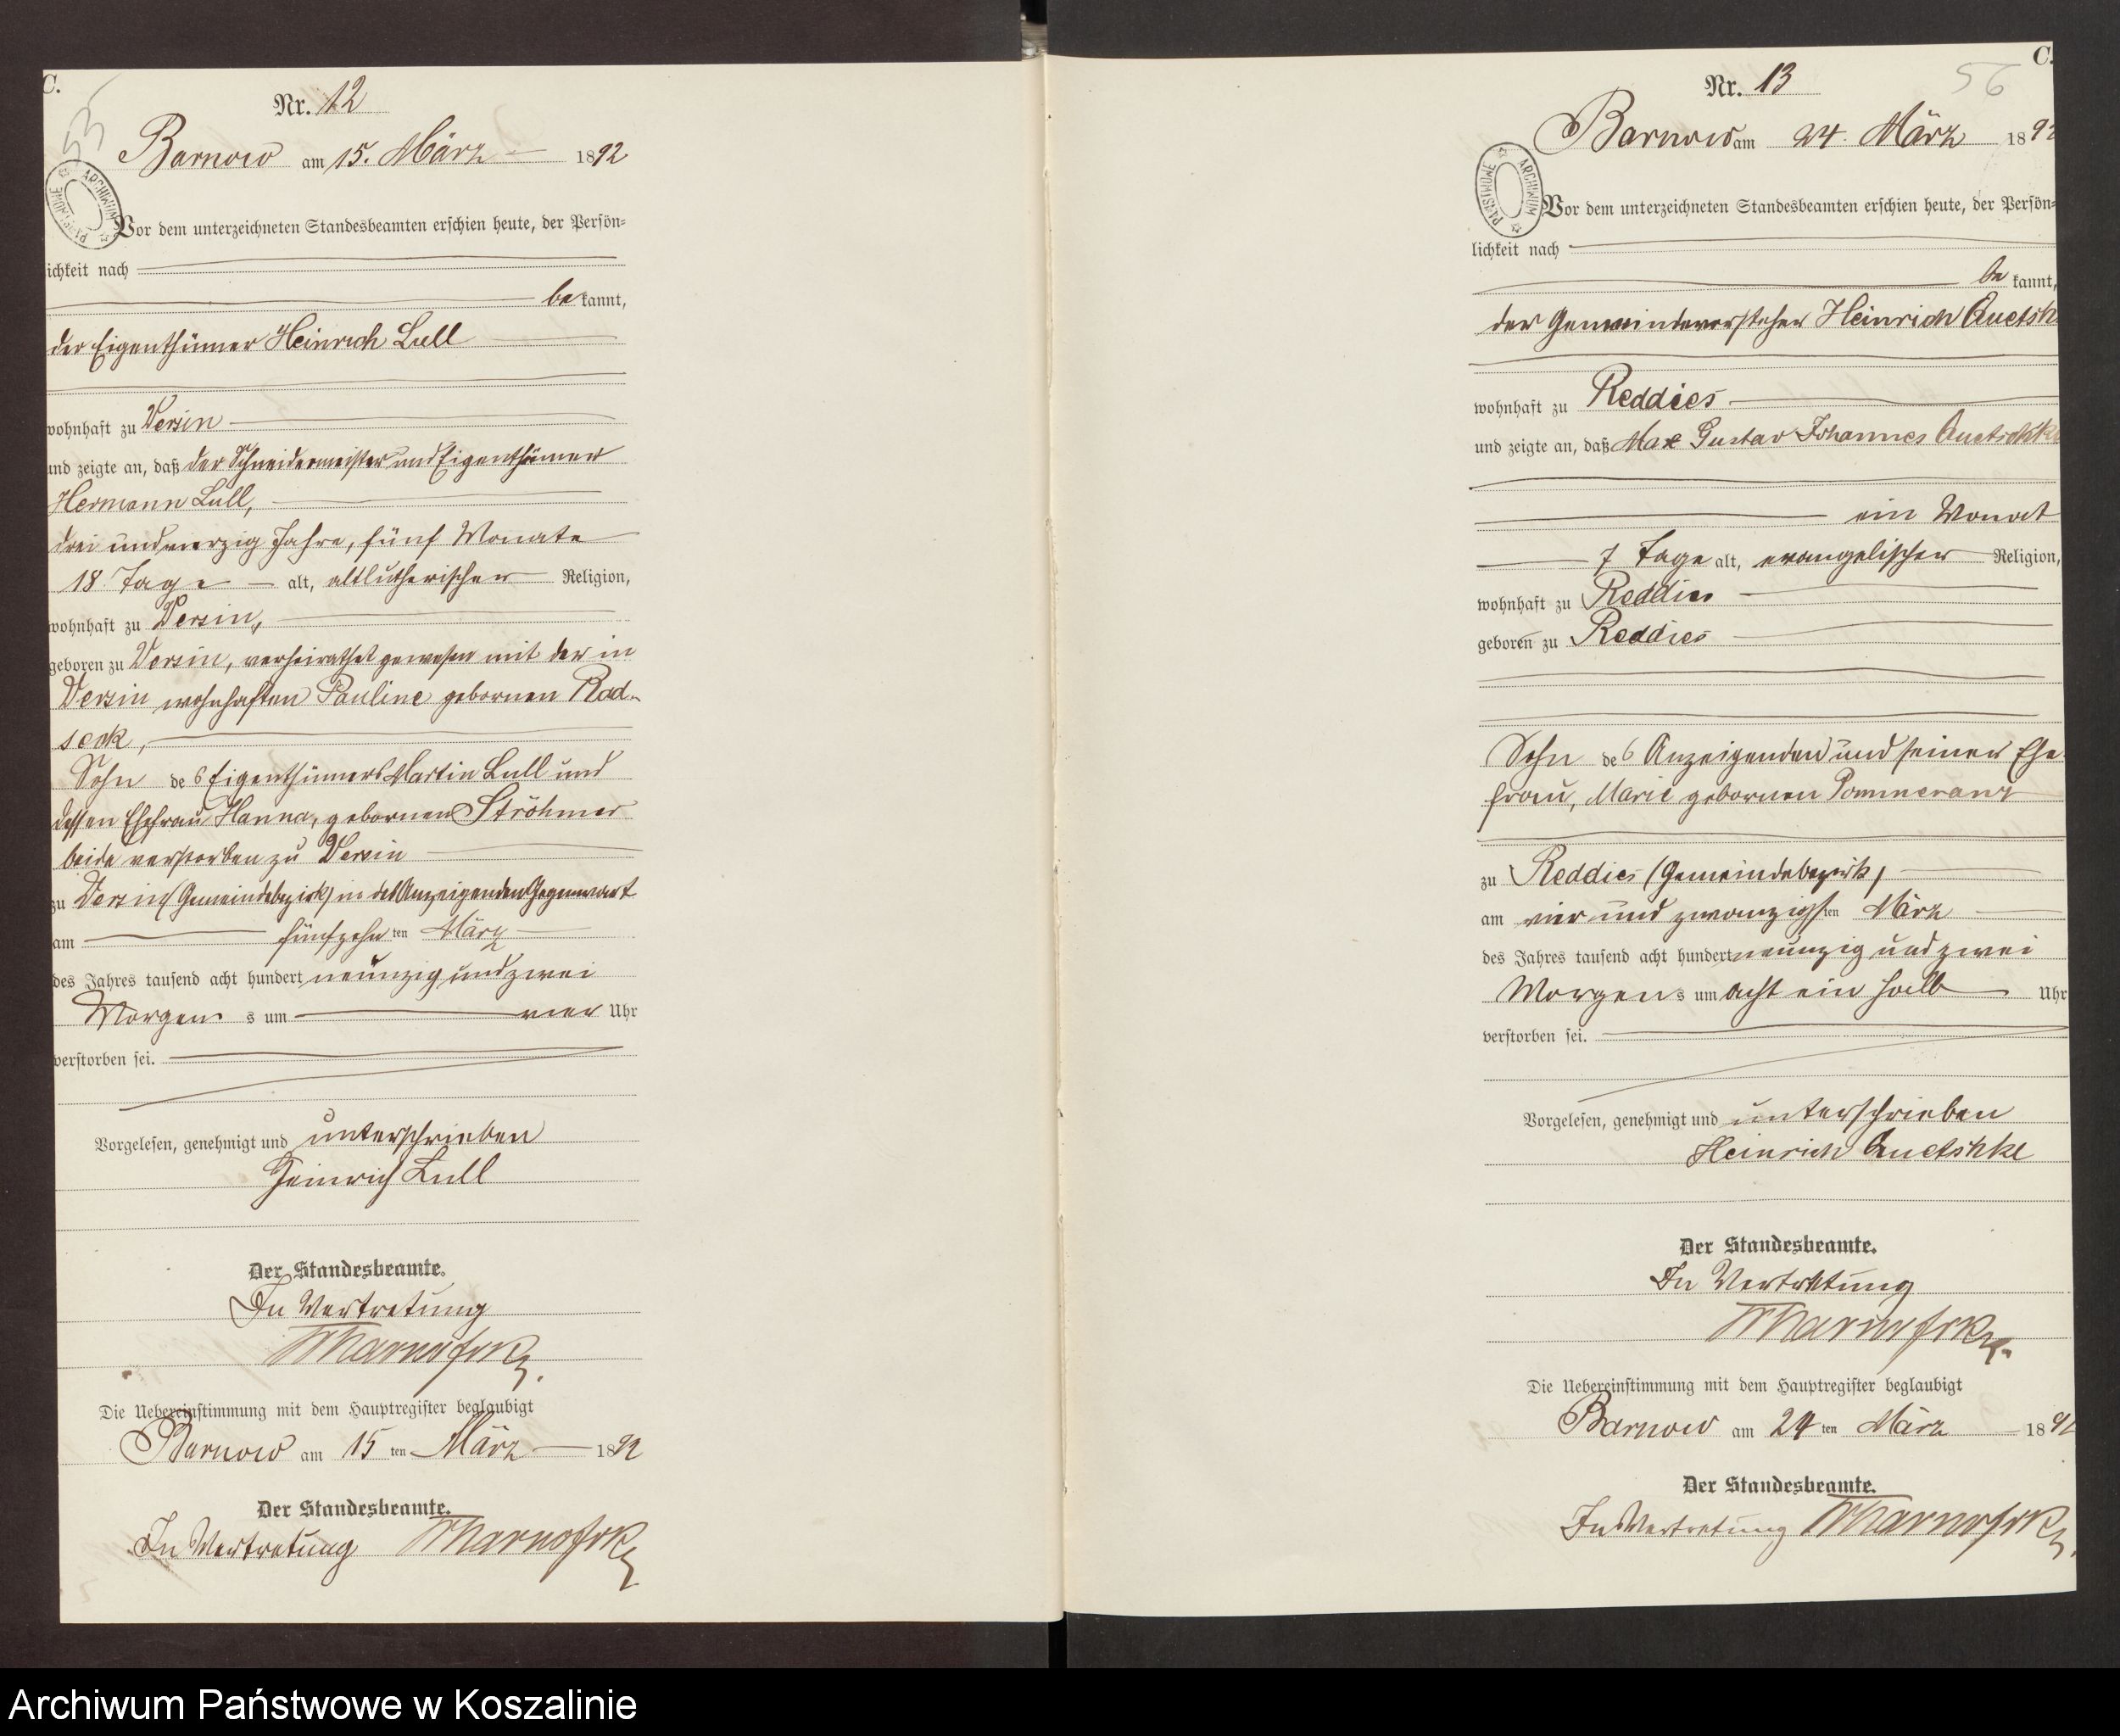 C.
55
Nr. 12
Barnow am 15. März 1892
ARCHIWUM PAŃSTWOWE
Vor dem unterzeichneten Standesbeamten erschien heute, der Persön=
ichkeit nach
be kannt,
der Eigenthümer Heinrich Lull
wohnhaft zu Versin
und zeigte an, daß der Schneidermeister und Eigenthümer
Hermann Lull,
drei und vierzig Jahre, fünf Monate
18 Tage alt, altlutherischer Religion,
wohnhaft zu Versin,
geboren zu Versin, verheirathet gewesen mit der in
Versin wohnhaften Pauline gebornen Rad-
seck,
Sohn des Eigenthümers Martin Lull und
dessen Ehefrau Hanna, gebornen Ströhmer
beide verstorben zu Versin
zu Versin (Gemeindebezirk) in des Anzeigenden Gegenwart
am fünfzehn ten März
des Jahres tausend acht hundert neunzig und zwei
Morgens um vier Uhr
verstorben sei.
Vorgelesen, genehmigt und unterschrieben
Heinrich Lull
Der Standesbeamte.
In Vertretung
Die Uebereinstimmung mit dem Hauptregister beglaubigt
Barnow am 15 ten März 1892
Der Standesbeamte.
In Vertretung
C.
56
Nr. 13
Barnow am 24. März 1892
ARCHIWUM PAŃSTWOWE
Vor dem unterzeichneten Standesbeamten erschien heute, der Persön=
lichkeit nach
be kannt,
der Gemeindevorsteher Heinrich Quetsh
wohnhaft zu Reddies
und zeigte an, daß Max Gustav Johannes Quetschke
ein Monat
7 Tage alt, evangelischer Religion,
wohnhaft zu Reddies
geboren zu Reddies
Sohn des Anzeigenden und seiner Ehe
frau, Marie gebornen Pommeranz
zu Reddies (Gemeindebezirk)
am vier und zwanzigsten März
des Jahres tausend acht hundert neunzig und zwei
Morgens um acht ein halb Uhr
verstorben sei.
Vorgelesen, genehmigt und unterschrieben
Heinrich Quetshke
Der Standesbeamte.
In Vertretung
Die Uebereinstimmung mit dem Hauptregister beglaubigt
Barnow am 24 ten März 1892
Der Standesbeamte.
In Vertretung
Archiwum Państwowe w Koszalinie